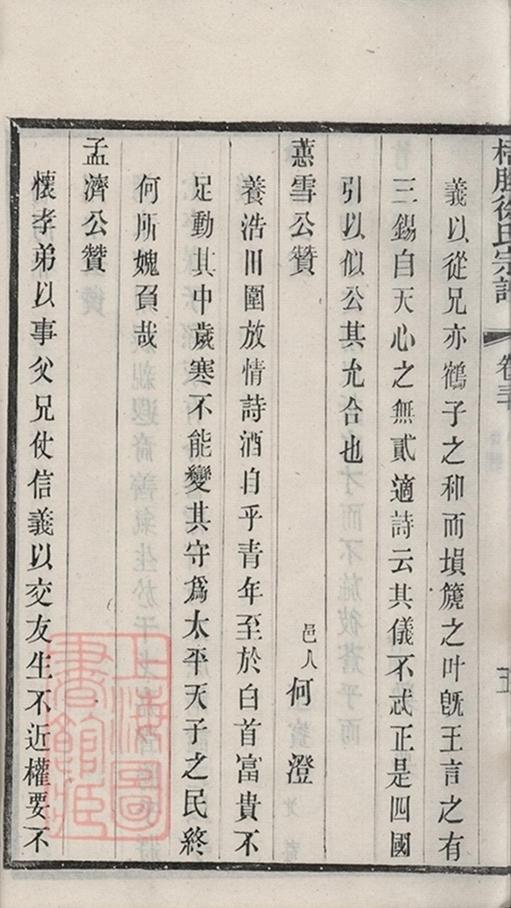 徐氏宗譜
卷三十
五
義以從兄亦鶴子之和而塤篪之叶旣王言之有
三錫自天心之無貳適詩云其儀不忒正是四國
引以似公其允合也
蕙雪公贊
邑人何澄
養浩田園放情詩酒自乎青年至於白首富貴不
足動其中歲寒不能變其守爲太平天子之民終
何所媿負哉
孟濟公贊
懷孝弟以事父兄仗信義以交友生不近權要不
上海圖書館藏